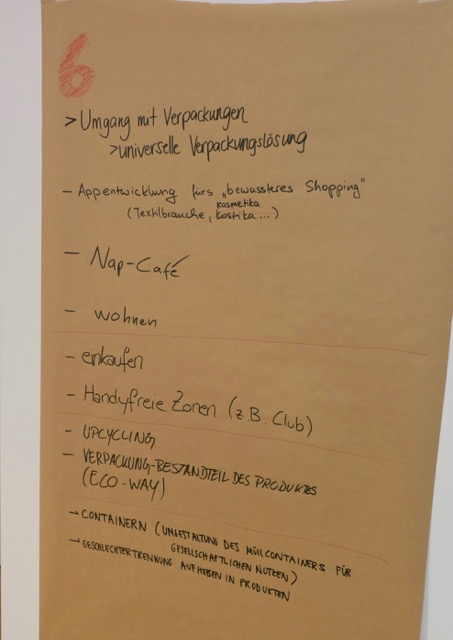 6
> Umgang mit Verpackungen
> universelle Verpackungslösung
- Appentwicklung fürs „bewussteres Shopping"
kosmetika
(Textilbranche, kostika...)
- Nap-Café
- wohnen
- einkaufen
- Handyfreie Zonen (z.B. Club)
- UPCYCLING
- VERPACKUNG-BESTANDTEIL DES PRODUKTES
(ECO-WAY)
→ CONTAINERN (UMGESTALTUNG DES MÜLLCONTAINERS FÜR
GESELLSCHAFTLICHEN NUTZEN)
→ GESCHLECHTERTRENNUNG AUFHEBEN IN PRODUKTEN